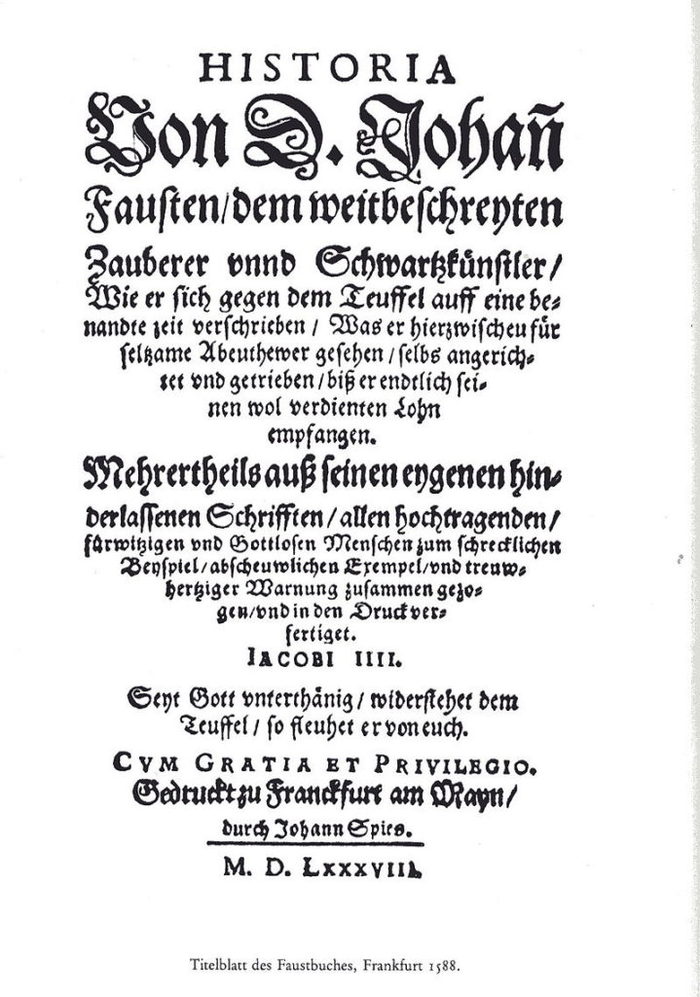 HISTORIA
Von D. Johañ
Fausten/dem weitbeschreyten
Zauberer vnnd Schwartzkünstler/
Wie er sich gegen dem Teuffel auff eine be-
nandte zeit verschrieben / Was er hierzwischeu für
seltzame Abeuthewer gesehen / selbs angerich-
tet vnd getrieben / biß er endtlich sei-
nen wol verdienten Lohn
empfangen.
Mehrertheils auß seinen eygenen hin-
derlassenen Schrifften / allen hochtragenden /
fürwitzigen vnd Gottlosen Menschen zum schrecklichen
Beyspiel / abscheuwlichen Exempel / vnd treuw-
hertziger Warnung zusammen gezo-
gen / vnd in den Druck ver-
fertiget.
IACOBI IIII.
Seyt Gott vnterthänig / widerstehet dem
Teuffel / so fleuhet er von euch.
CVM GRATIA ET PRIVILEGIO.
Gedruckt zu Franckfurt am Mayn /
durch Johann Spies.
M. D. LXXXVIII.
Titelblatt des Faustbuches, Frankfurt 1588.